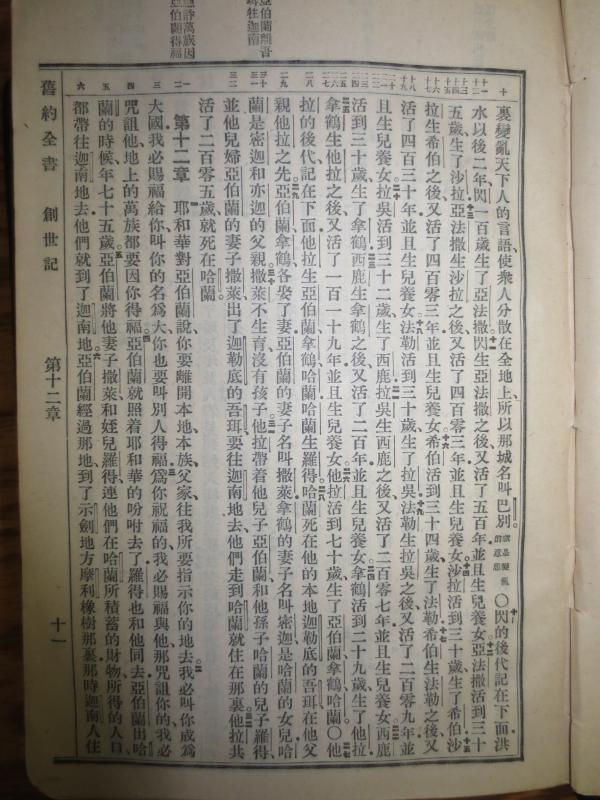 裏變亂天下人的言語使衆人分散在全地上所以那城名叫巴別 就是變亂的意思 〇閃的後代記在下面洪
水以後二年閃一百歲生了亞法撒閃生亞法撒之後又活了五百年並且生兒養女亞法撒活到三十
五歲生了沙拉亞法撒生沙拉之後又活了四百零三年並且生兒養女沙拉活到三十歲生了希伯沙
拉生希伯之後又活了四百零三年並且生兒養女希伯活到三十四歲生了法勒希伯生法勒之後又
活了四百三十年並且生兒養女法勒活到三十歲生了拉吳法勒生拉吳之後又活了二百零九年並
且生兒養女拉吳活到三十二歲生了西鹿拉吳生西鹿之後又活了二百零七年並且生兒養女西鹿
活到三十歲生了拿鶴西鹿生拿鶴之後又活了二百年並且生兒養女拿鶴活到二十九歲生了他拉
拿鶴生他拉之後又活了一百一十九年並且生兒養女他拉活到七十歲生了亞伯蘭拿鶴哈蘭〇他
拉的後代記在下面他拉生亞伯蘭拿鶴哈蘭哈蘭生羅得哈蘭死在他的本地迦勒底的吾珥在他父
親他拉之先亞伯蘭拿鶴各娶了妻亞伯蘭的妻子名叫撒萊拿鶴的妻子名叫密迦是哈蘭的女兒哈
蘭是密迦和亦迦的父親撒萊不生育沒有孩子他拉帶着他兒子亞伯蘭和他孫子哈蘭的兒子羅得
並他兒婦亞伯蘭的妻子撒萊出了迦勒底的吾珥要往迦南地去他們走到哈蘭就住在那裏他拉共
活了二百零五歲就死在哈蘭
第十二章 耶和華對亞伯蘭說你要離開本地本族父家往我所要指示你的地去我必叫你成爲
大國我必賜福給你叫你的名爲大你也要叫別人得福爲你祝福的我必賜福與他那咒詛你的我必
咒詛他地上的萬族都要因你得福亞伯蘭就照着耶和華的吩咐去了羅得也和他同去亞伯蘭出哈
蘭的時候年七十五歲亞伯蘭將他妻子撒萊和姪兒羅得連他們在哈蘭所積蓄的財物所得的人口
都帶往迦南地去他們就到了迦南地亞伯蘭經過那地到了示劍地方摩利橡樹那裏那時迦南人住
舊約全書 創世記 第十二章 十一